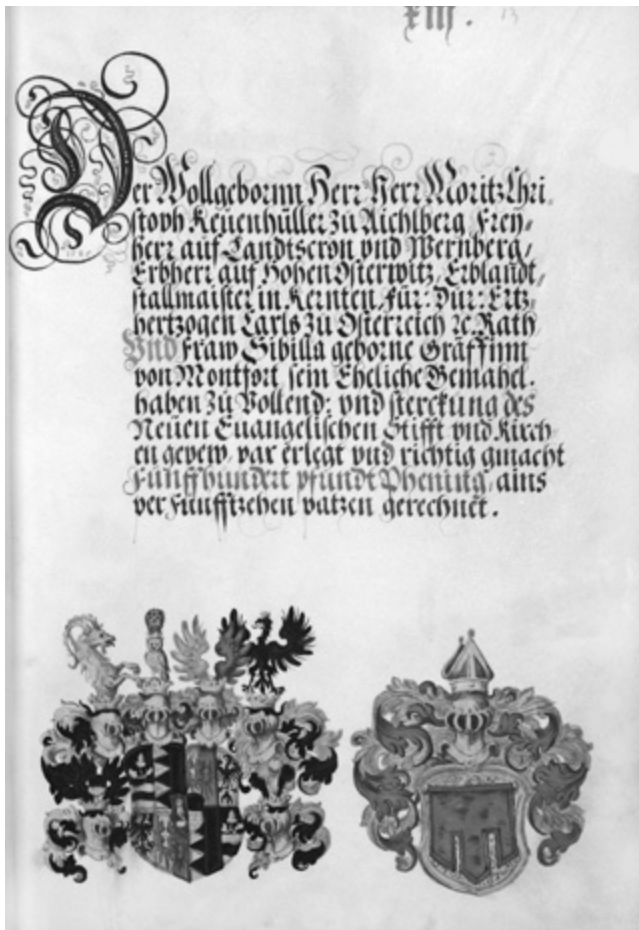 XIII. 13
Der Wollgebornn Herr Herr Moritz Chri-
stoph Keuenhüller zu Aichlberg, Frey-
herr auf Landtscron vnd Wernberg/
Erbherr auf Hohen Osterwitz, Erblandt,
stallmaister in Kernten, Für: Dur: Ertz-
hertzogen Carls zu Osterreich ꝛc. Rath
Vnd Fraw Sibilla geborne Gräffinn
von Montfort, sein Eheliche Gemahel.
haben zu Vollend: vnd sterckung des
Neuen Euangelischen Stifft vnd Kirch
en gepew, par erlegt vnd richtig gmacht
Fünffhundert pfundt Phening, ains
per Fünfftzehen patzen gerechnet.